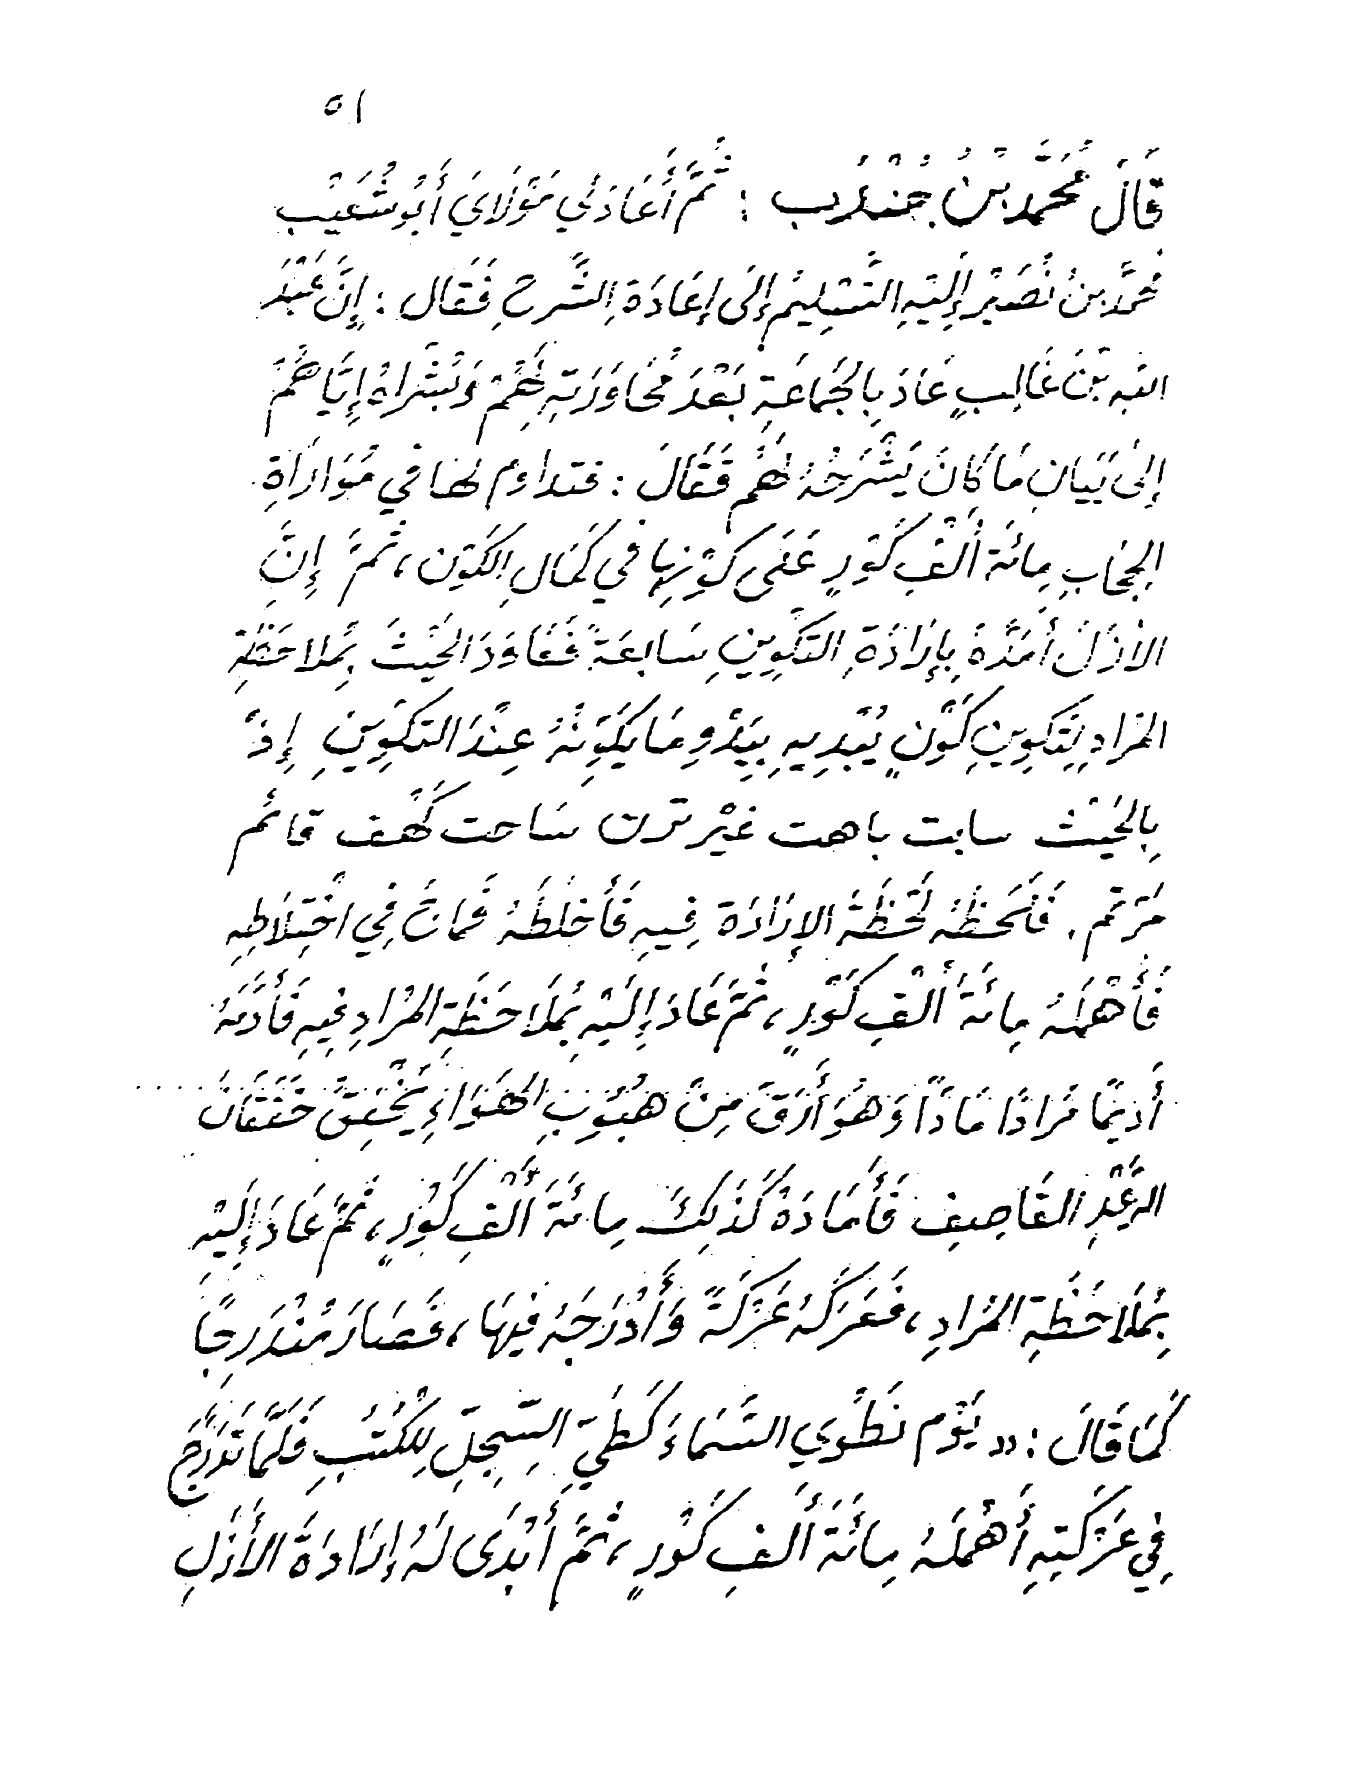 ٥١
قَالَ مُحَمَّد بْنُ جُنْدُب : ثُمَّ أَعَادَنِي مَوْلَايَ أَبُو شُعَيْب
مُحَمَّد بنُ نُصَيْر إِلَيْهِ التَّسْلِيمُ إِلَى إِعَادَةِ الشَّرحِ فَقَال : إِنَّ عَبْدَ
اللهِ بْنَ غَالِبٍ عَادَ بِالجَمَاعَةِ بَعْدَ مُحَاوَرَتِهِ لَهُمْ وَبُشْرَاهُ إِيَّاهُمْ
إِلَى بَيَانِ مَا كَانَ يَشْرَحُهُ لَهُم فَقَالَ : فتداوم لها في مُوَازَاةِ
الحِجَابِ مِائَة أَلْف كَوْرٍ عَلَى كَوْنِهَا فِي كَمَالِ الكَوْن، ثُمَّ إِنَّ
الأَزَلَ أَمَدَّهُ بِإِرَادَةِ التَكْوِينِ سَابِعَةً فَعَاوَدَ الحَيْثَ بِمُلاحَظَةِ
المُرَادِ لِتَكْوِينِ كَوْنٍ يُبْدِيهِ بِبَدْوِ مَا يُكَوِّنُهُ عِنْدَ التَكْوِينِ إِذْ
بِالحَيْثِ سابت باهت غَيْر ترن سَاحت كَهْف قائم
مَرْتَم . فَلَحَظَهُ لَحْظَةَ الإِرَادَة فِيهِ فَأَخْلَطَهُ فَمَاجَ فِي اخْتِلَاطِهِ
فَأَهْمَلَهُ مِائَةَ أَلْفِ كَوْرٍ، ثُمَّ عَادَ إِلَيْهِ بِمُلَاحَظَةِ المُرَادِ فِيهِ فَأَدَمَهُ
أَدِيمًا مُرَادًا مَادًّا وَهُوَ أَرَقَّ مِنْ هُبُوبِ الهَوَاءِ يَخْفِقُ خَفَقَانَ
الرَّعْدِ القَاصِفِ فَأَمَادَهُ كَذَلِكَ مِائَةَ أَلْفِ كَوْرٍ، ثُمَّ عَادَ إِلَيْهِ
بِمُلَاحَظَةِ المُرَادِ، فَعَرَكَهُ عَرْكَةً وَأَدْرَجَهُ فِيهَا، فَصَارَ مُنْدَرِجًا
كَمَا قَالَ : « يَوْم نَطْوِي السَّمَاءَ كَطَيِّ السِّجِلِّ لِلكُتُبِ فَلَمَّا تَدَرَّجَ
فِي عَرْكَتِهِ أَهْمَلَهُ مِائَةَ أَلفِ كَوْرٍ، ثُمَّ أَبْدَى لَهُ إِرَادَةَ الأَزَلِ